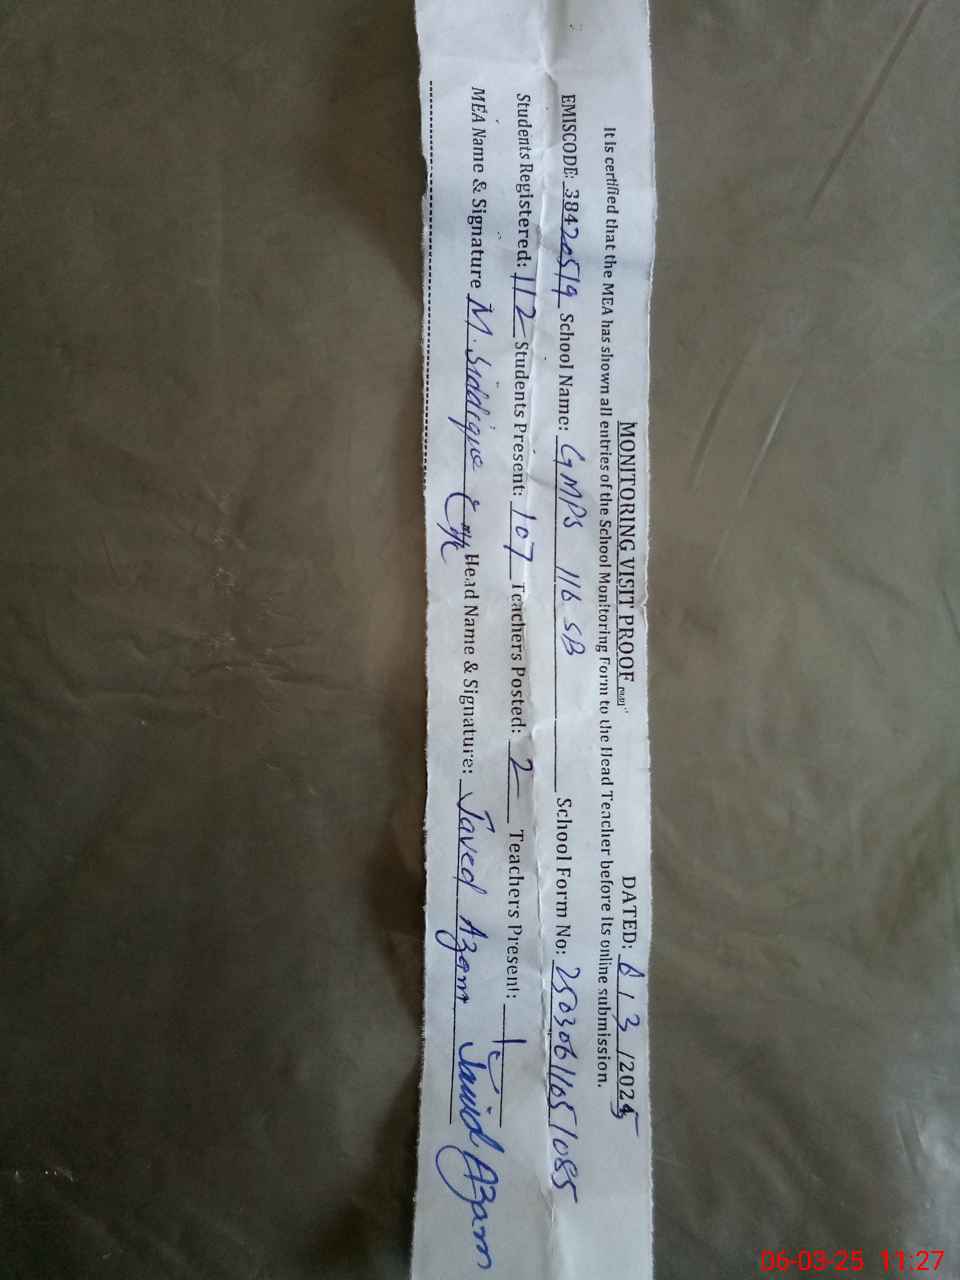 MONITORING VISIT PROOF DATED: 6 / 3 /2025
It is certified that the MEA has shown all entries of the School Monitoring Form to the Head Teacher before its online submission.
EMISCODE: 38420519 School Name: GMPS 116 SB School Form No: 25030611051085
Students Registered: 112 Students Present: 107 Teachers Posted: 2 Teachers Present: 1
MEA Name & Signature M. Siddique Head Name & Signature: Javed Azam Javid Azam
06-03-25 11:27